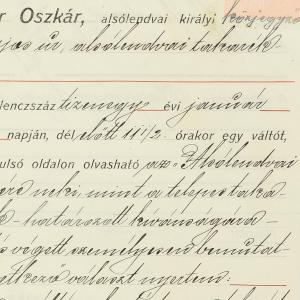 r Oszkár, alsólendvai királyi közjegyző
jos úr, alsólendvai takarék
lenczszáz tizenegy évi január
napján, dél előtt 11 1/2 órakor egy váltót,
ulsó oldalon olvasható „az Alsólendvai
neki, mint a telepes taka
k- határozott kívánságára
végett személyesen bemutat-
tkező választ nyertem: